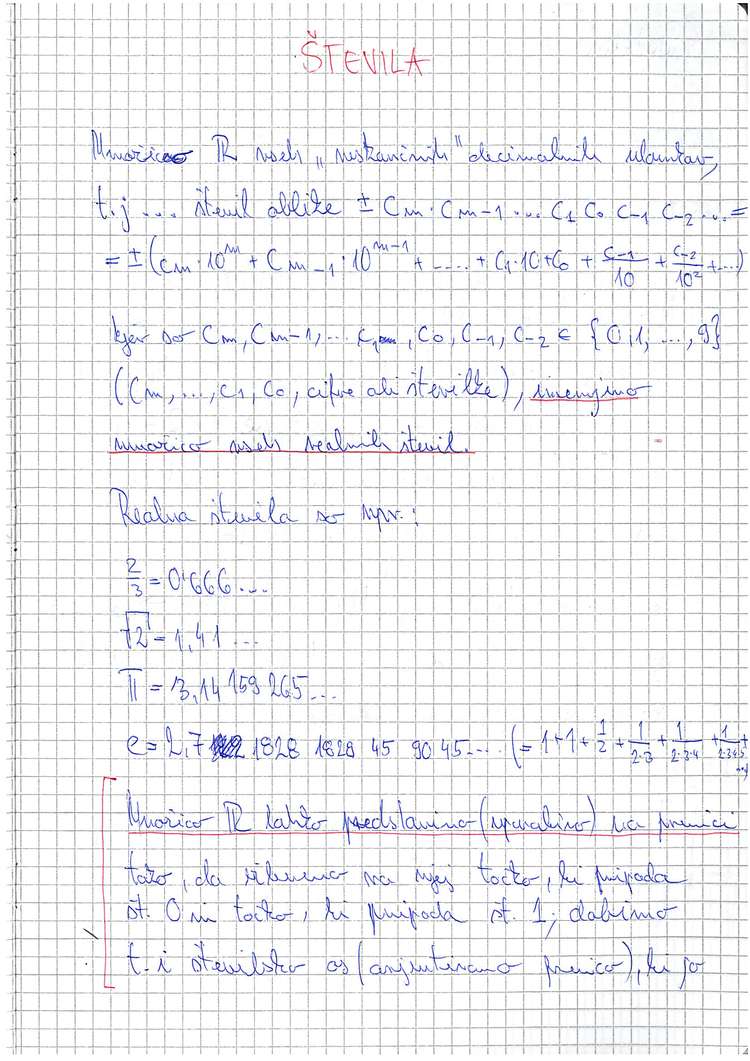 ŠTEVILA
Množico ℝ vseh „neskončnih" decimalnih ulomkov,
t.j ... števil oblike ± Cm · Cm-1 ... C1 C0 C-1 C-2 ... =
= ± (Cm · 10^m + Cm-1 · 10^m-1 + .... + C1 · 10 + C0 + C-1/10 + C-2/10² + ...)
kjer so Cm, Cm-1, ... , C0, C-1, C-2 ∈ {0,1, ..., 9}
(Cm, ..., C1, C0, cifre ali številke), imenujmo
množico vseh realnih števil.
Realna števila so npr.:
2/3 = 0'666...
√2 = 1,41 ...
π = 3,14 159 265...
e = 2,7 1828 1828 45 90 45.... (= 1+1+ 1/2 + 1/2·3 + 1/2·3·4 + 1/2·3·4·5 +
Množico ℝ lahko predstavimo (uporabimo) na premici
tako, da izberemo na njej točko, ki pripada
št. 0 in točko, ki pripada št. 1; dobimo
t.i številsko os (orientirano premico), ki jo